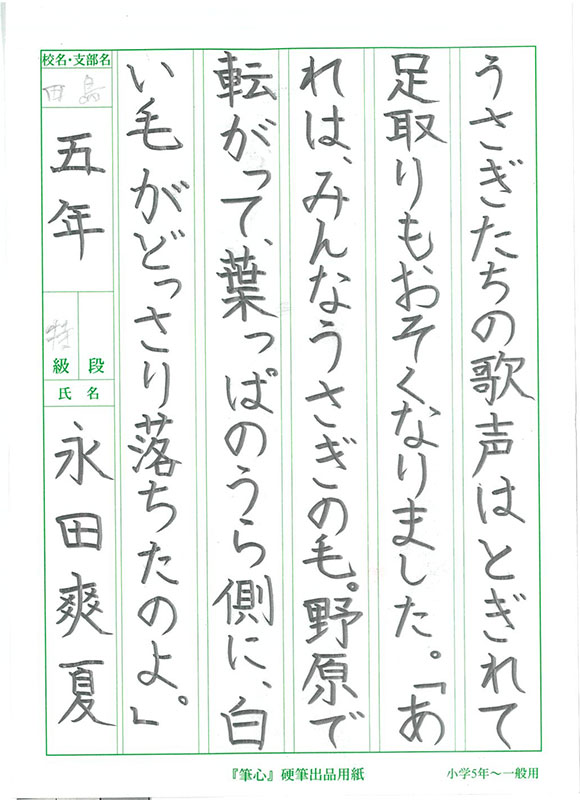 うさぎたちの歌声はとぎれて
足取りもおそくなりました。「あ
れは、みんなうさぎの毛。野原で
転がって、葉っぱのうら側に、白
い毛がどっさり落ちたのよ。」
校名・支部名
田島
五年
特
級
段
氏名
永田爽夏
『筆心』硬筆出品用紙
小学5年～一般用